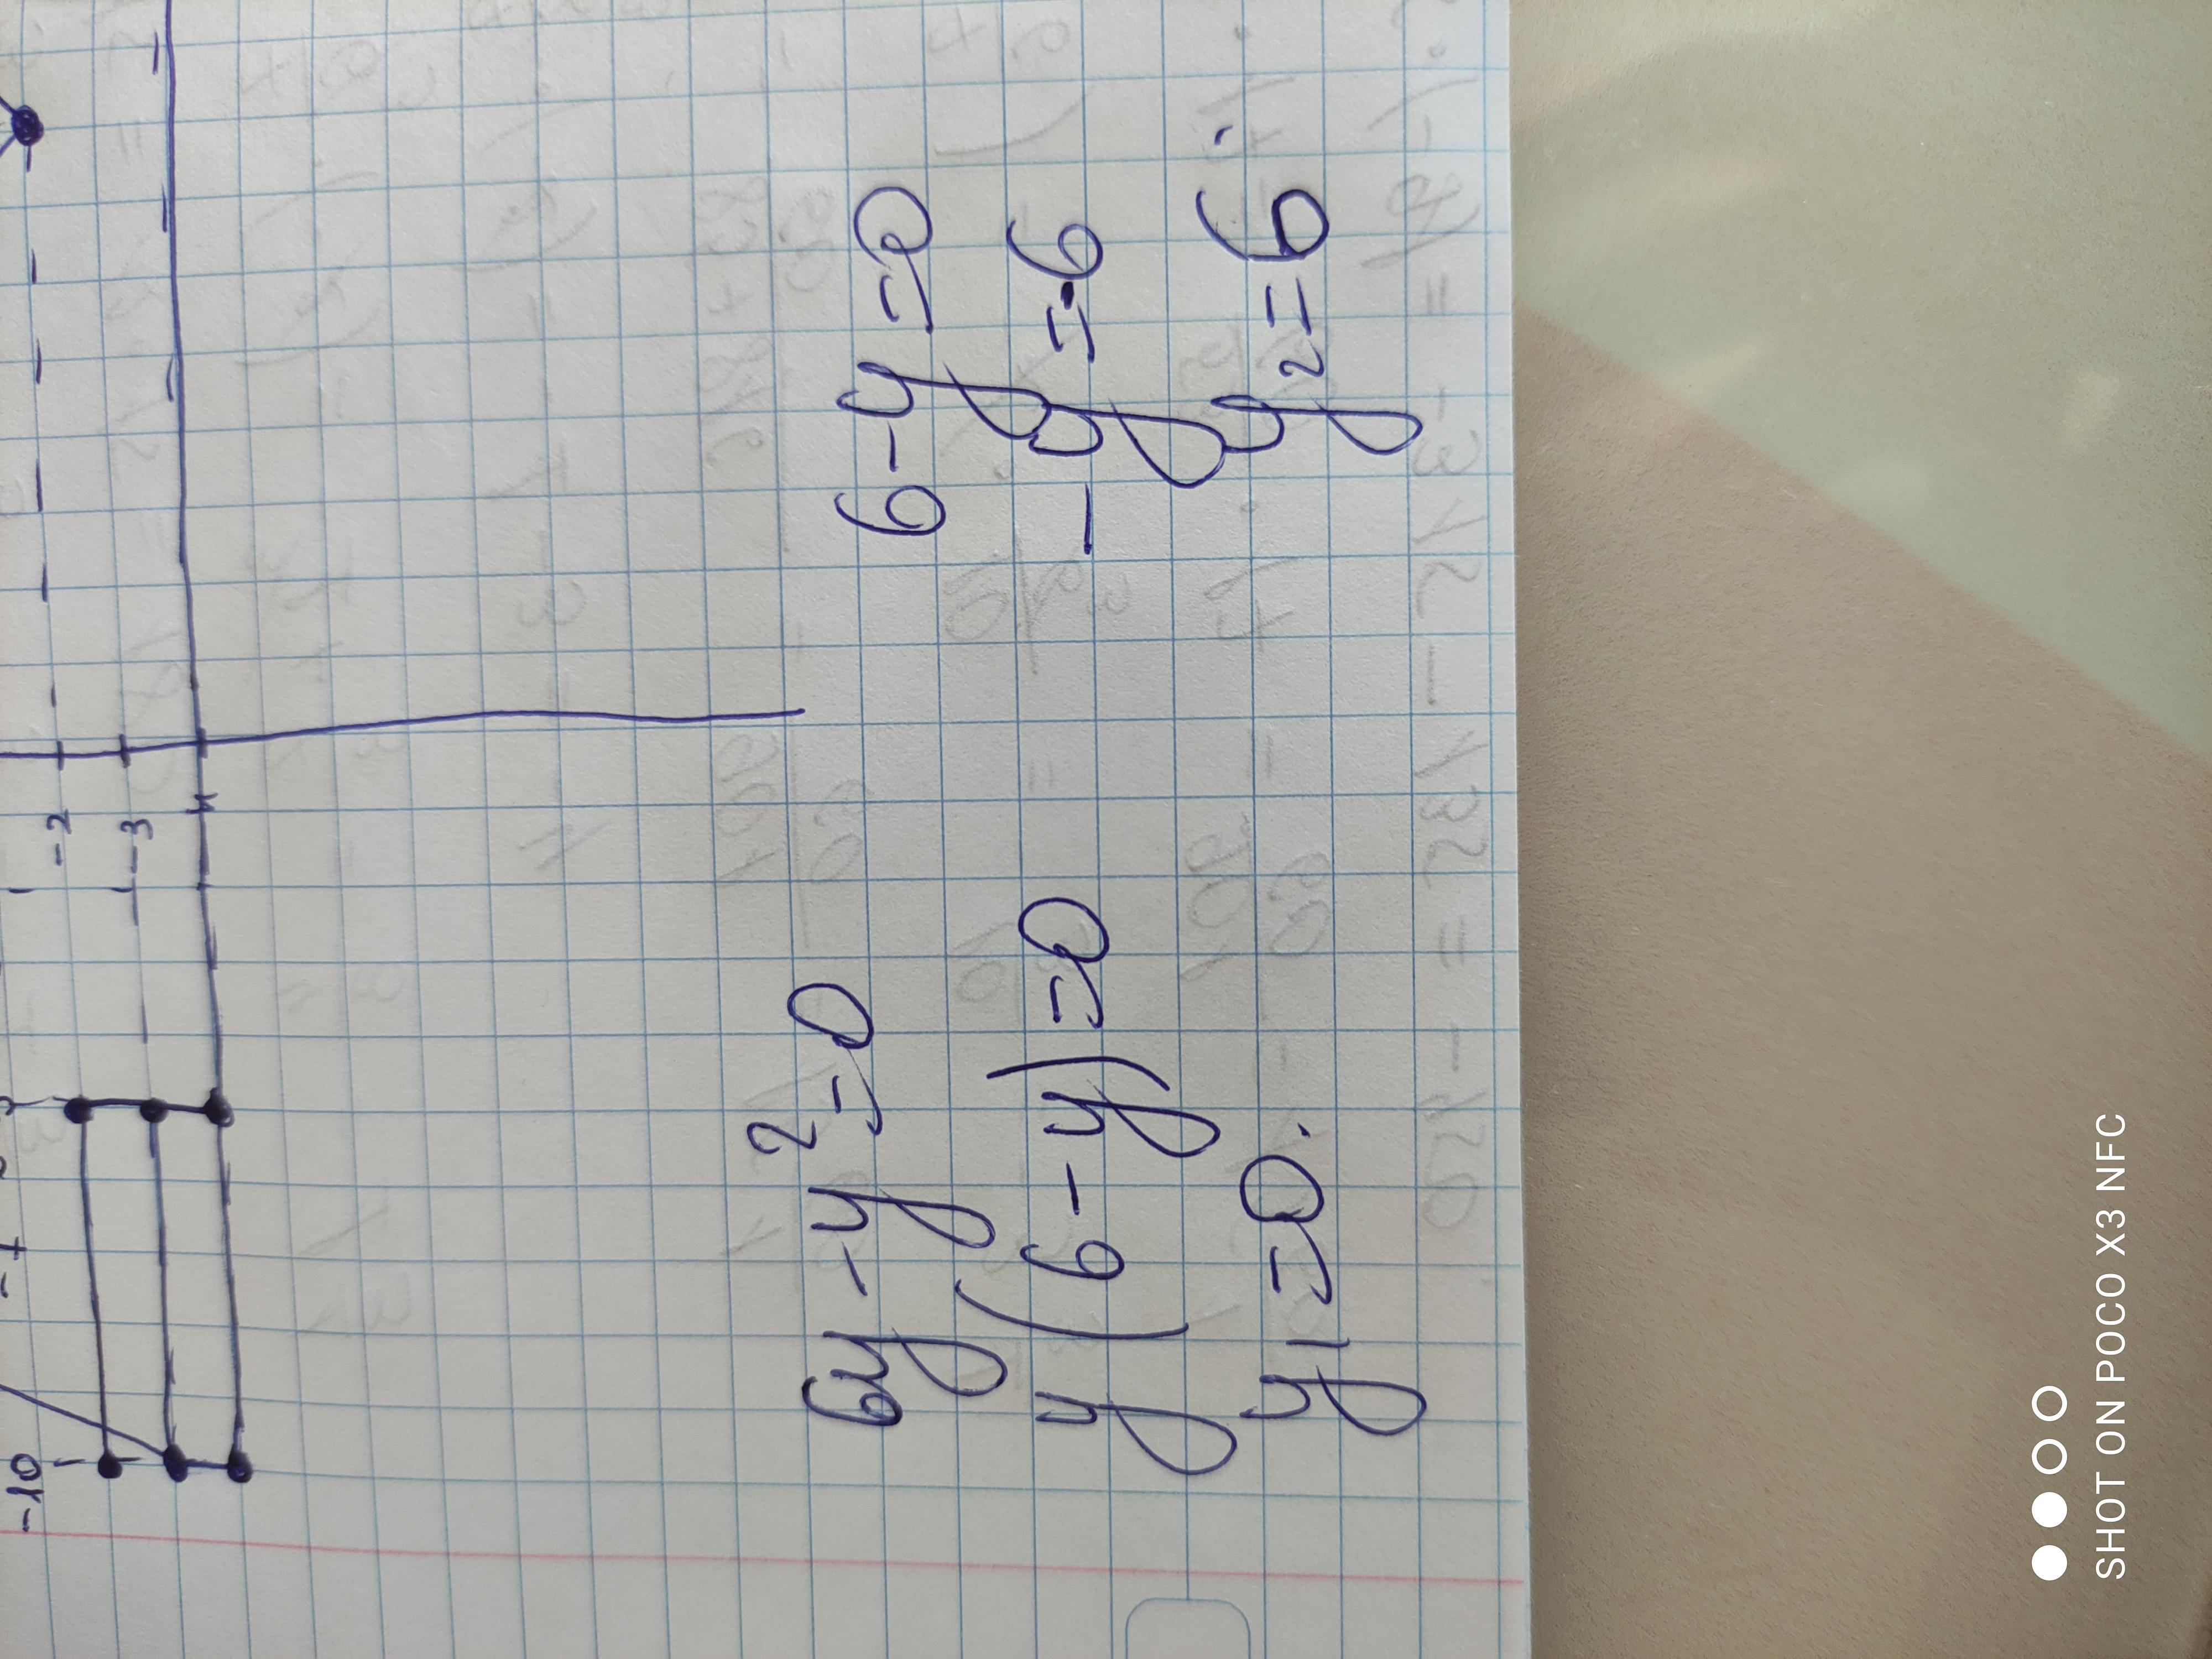 -2
-3
-10
6y - y² = 0
y(6 - y) = 0
y₁ = 0.
6 - y = 0
- y = -6
y₂ = 6.
SHOT ON POCO X3 NFC